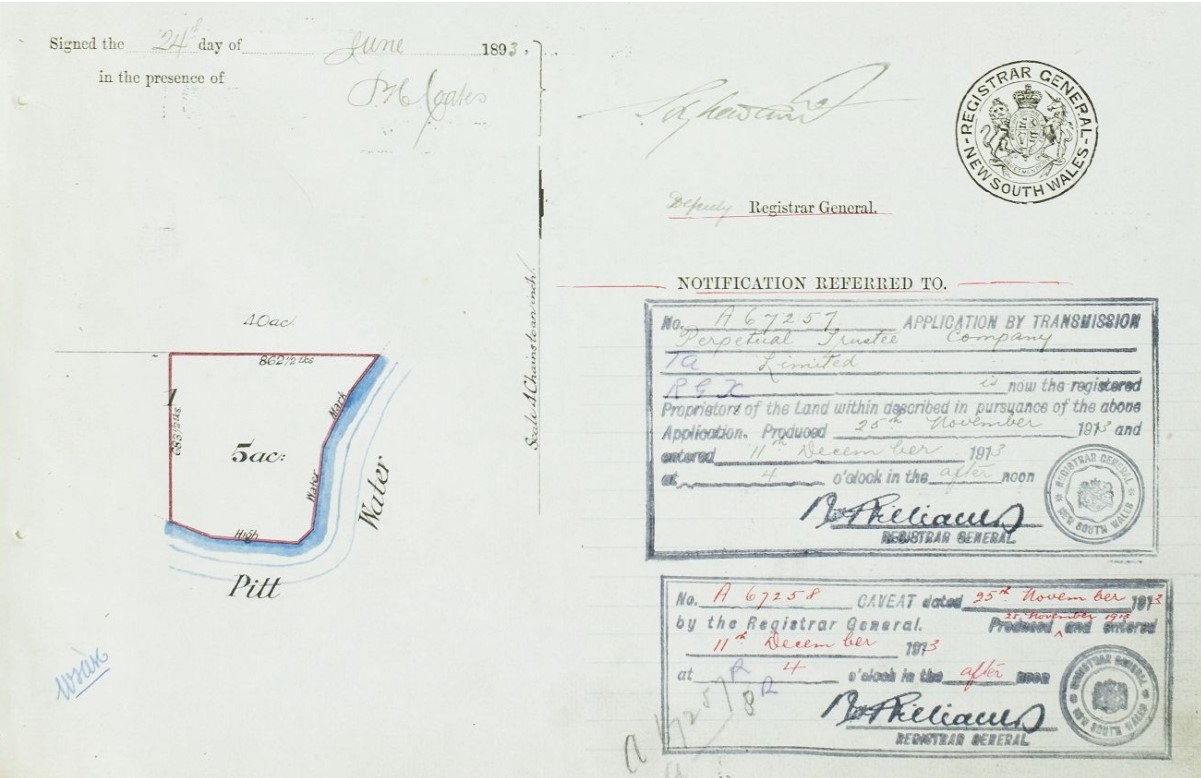 Signed the 24th day of June 1893,
in the presence of
J H Coates
Deputy Registrar General.
REGISTRAR GENERAL
NEW SOUTH WALES
NOTIFICATION REFERRED TO.
40ac
862 1/2 lks
1
683 1/2 lks
5ac:
High Water Mark
Pitt Water
Scale 4 Chains to an inch
No. A 67257 APPLICATION BY TRANSMISSION
Perpetual Trustee Company
Limited
R G X is now the registered
Proprietors of the Land within described in pursuance of the above
Application. Produced 25th November 1913 and
entered 11th December 1913
at 4 o'clock in the after noon
REGISTRAR GENERAL
REGISTRAR GENERAL
NEW SOUTH WALES
No. A 67258 CAVEAT dated 25th November 1913
25 November 1913
by the Registrar General. Produced ^ and entered
11th December 1913
at 4 o'clock in the after noon
REGISTRAR GENERAL
REGISTRAR GENERAL
NEW SOUTH WALES
R
8 R